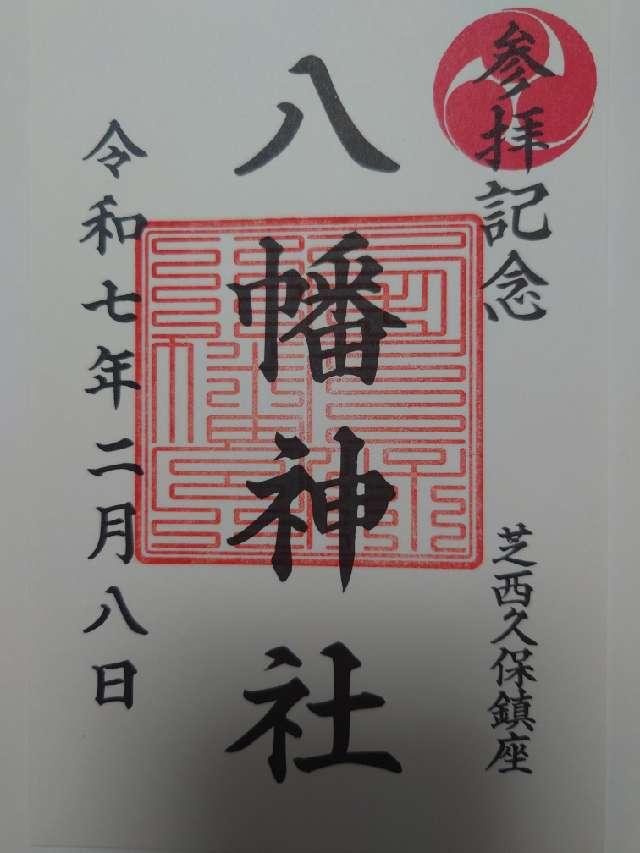 参拝記念
芝西久保鎮座
八幡神社
令和七年二月八日